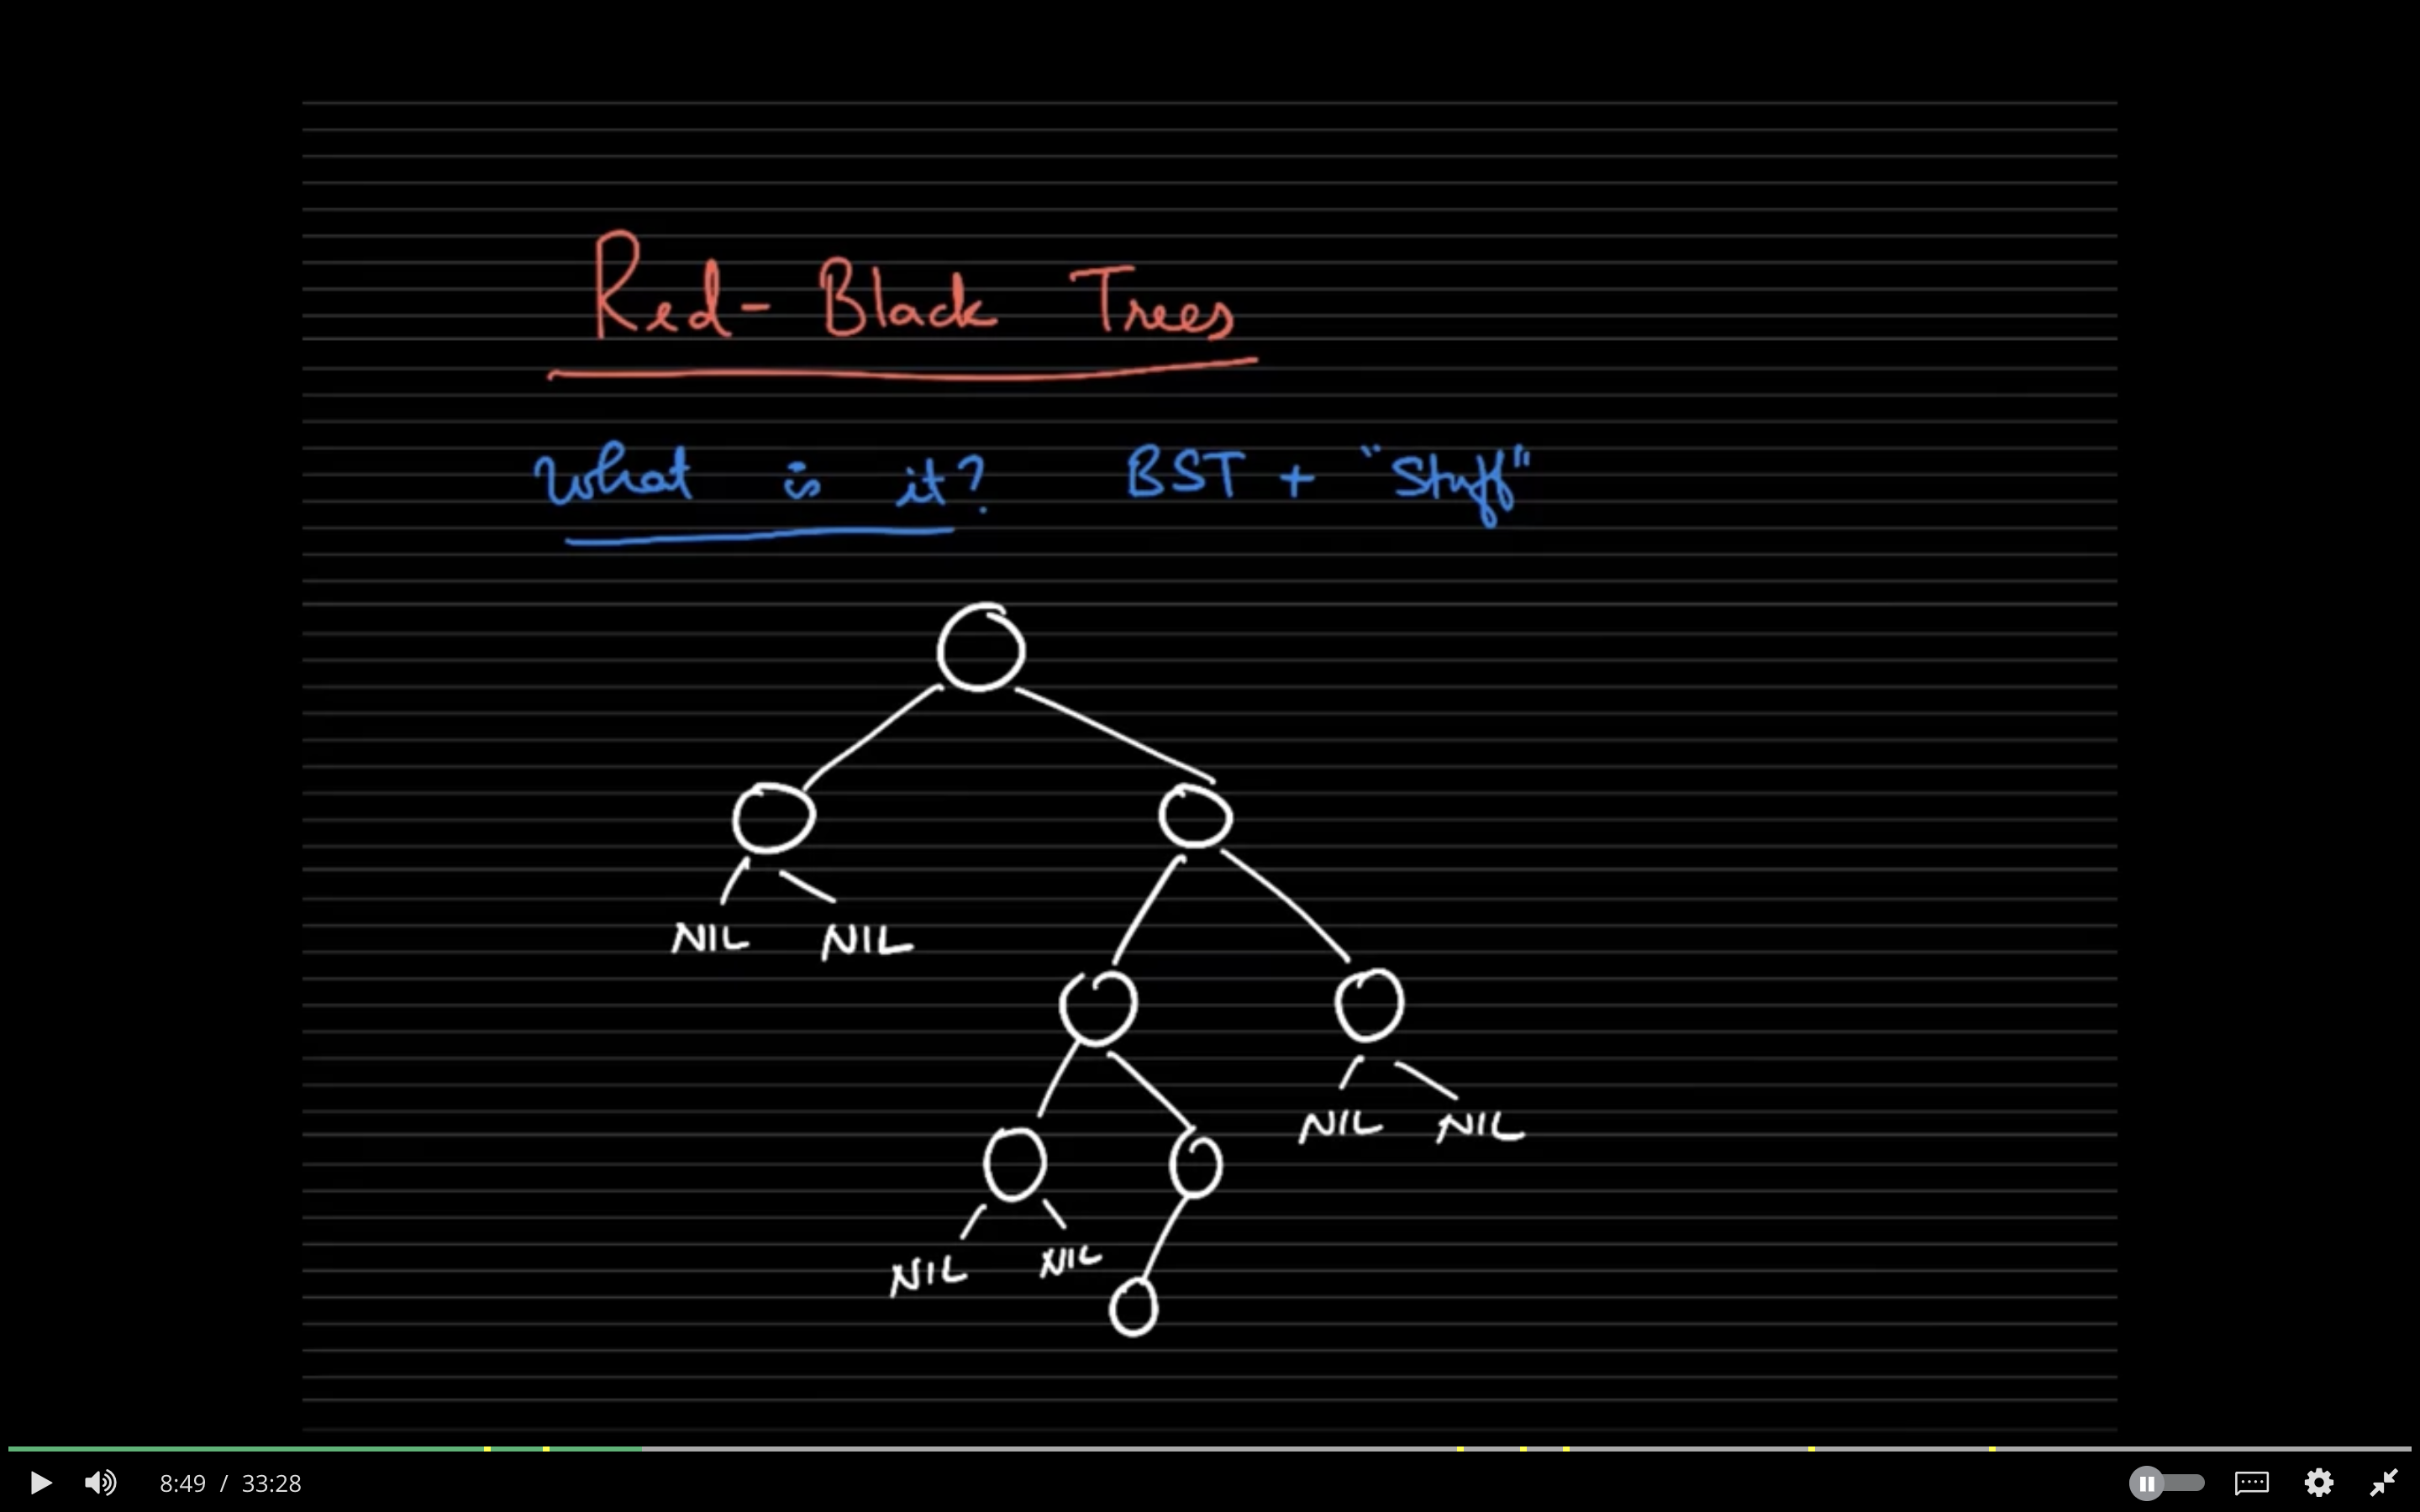 Red-Black Trees
What is it? BST + "Stuff"
NIL NIL
NIL NIL
NIL NIL
8:49 / 33:28